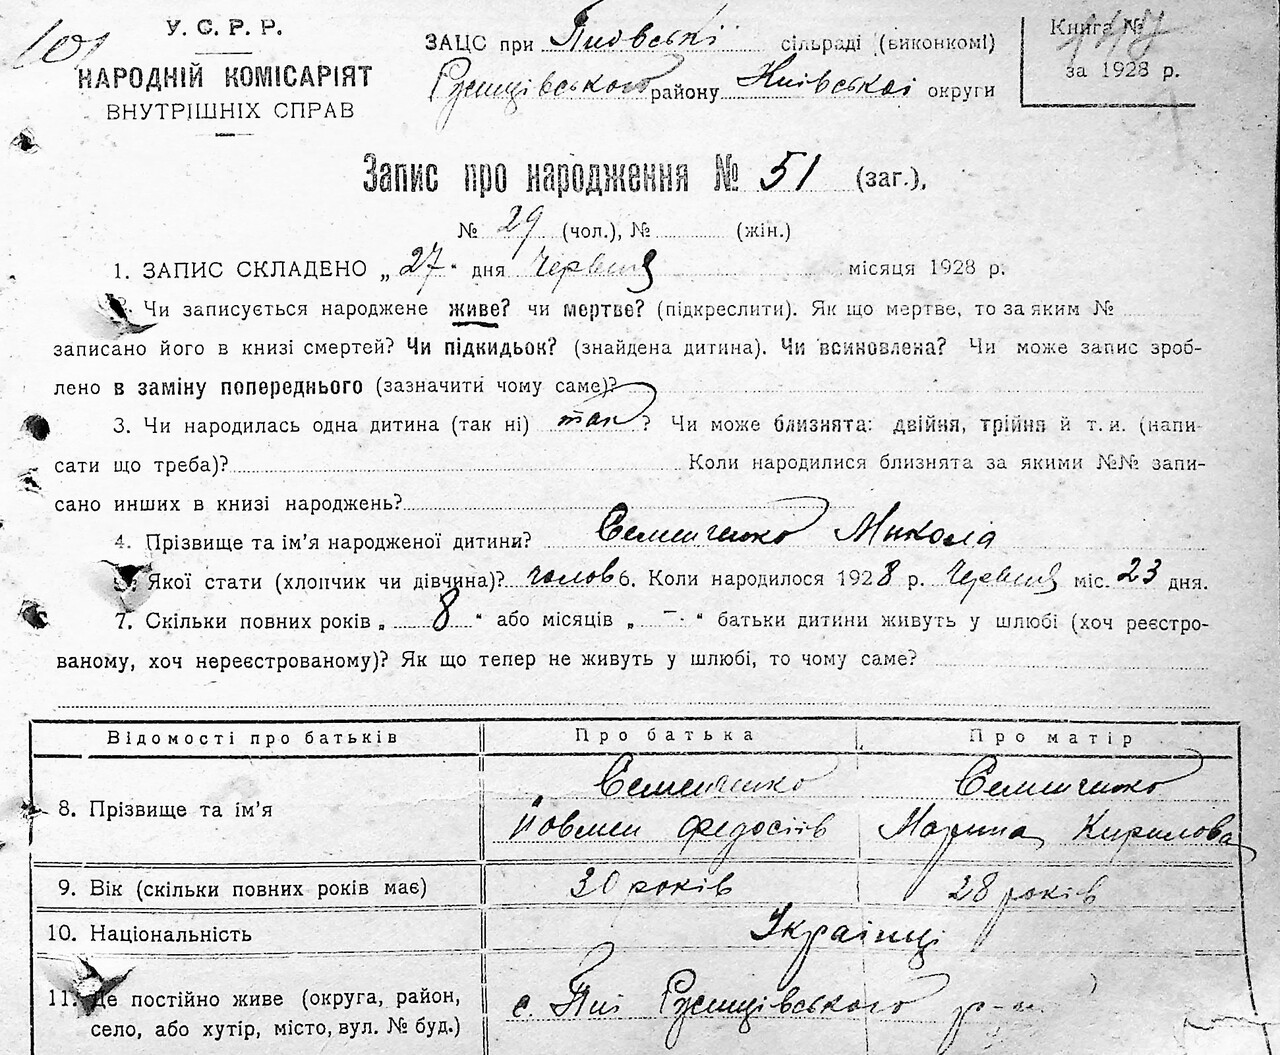 101
У. С. Р. Р.
НАРОДНІЙ КОМІСАРІЯТ
ВНУТРІШНІХ СПРАВ
ЗАЦС при Пиївські сільраді (виконкомі)
району Київської округи
Книга №
за 1928 р.
Запис про народження № 51 (заг.),
№ 29 (чол.), № (жін.)
1. ЗАПИС СКЛАДЕНО „27“ дня Червня місяця 1928 р.
2. Чи записується народжене живе? чи мертве? (підкреслити). Як що мертве, то за яким №
записано його в книзі смертей? Чи підкидьок? (знайдена дитина). Чи всиновлена? Чи може запис зроб-
лено в заміну попереднього (зазначити чому саме)?
3. Чи народилась одна дитина (так ні) так? Чи може близнята: двійня, трійня й т. и. (напи-
сати що треба)? Коли народилися близнята за якими №№ запи-
сано инших в книзі народжень?
4. Прізвище та ім’я народженої дитини? Семенченко Микола
5. Якої стати (хлопчик чи дівчина)? чолов 6. Коли народилося 1928 р. Червня міс. 23 дня.
7. Скільки повних років „ 8 “ або місяців „ — “ батьки дитини живуть у шлюбі (хоч реєстро-
ваному, хоч нереєстрованому)? Як що тепер не живуть у шлюбі, то чому саме?
Відомості про батьків Про батька Про матір
8. Прізвище та ім’я Семенченко Семенченко
Йовмен Федосіїв Марина Кирилова
9. Вік (скільки повних років має) 30 років 28 років
10. Національність Українці
11. Де постійно живе (округа, район, с. Пиї
село, або хутір, місто, вул. № буд.)